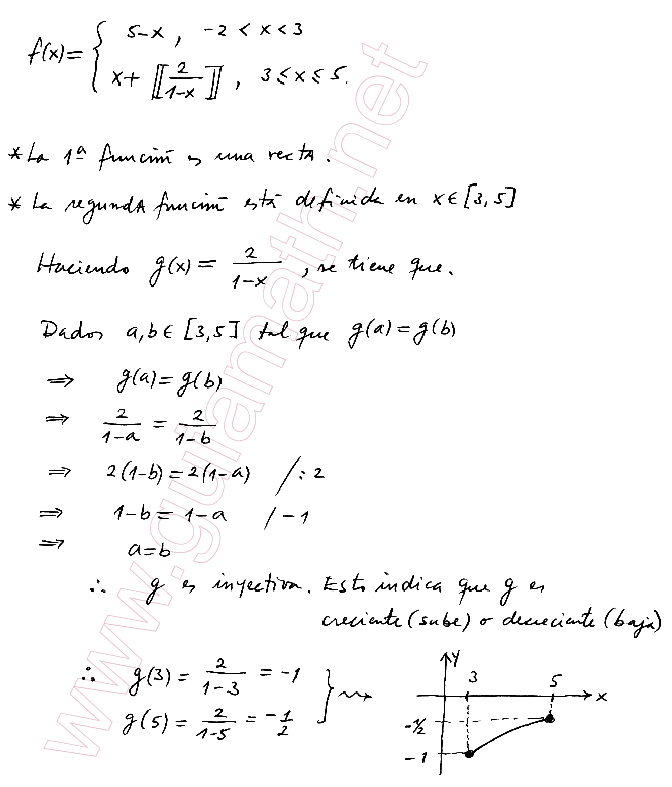 f(x) = { 5-x , -2 < x < 3
x + ⟦ 2/(1-x) ⟧ , 3 ≤ x ≤ 5.
* La 1ª función es una recta.
* La segunda función está definida en x ∈ [3,5]
Haciendo g(x) = 2/(1-x) , se tiene que.
Dados a,b ∈ [3,5] tal que g(a) = g(b)
⇒ g(a) = g(b)
⇒ 2/(1-a) = 2/(1-b)
⇒ 2(1-b) = 2(1-a) /:2
⇒ 1-b = 1-a /-1
⇒ a=b
∴ g es inyectiva. Esto indica que g es
creciente (sube) o decreciente (baja)
∴ g(3) = 2/(1-3) = -1
g(5) = 2/(1-5) = -1/2
y
3 5
x
-1/2
-1
www.guiamath.net